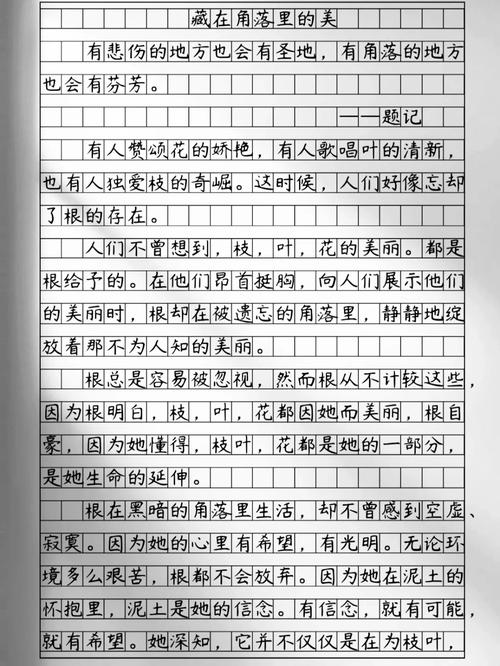 藏在角落里的美
有悲伤的地方也会有圣地，有角落的地方
也会有芬芳。
——题记
有人赞颂花的娇艳，有人歌唱叶的清新，
也有人独爱枝的奇崛。这时候，人们好像忘却
了根的存在。
人们不曾想到，枝，叶，花的美丽。都是
根给予的。在他们昂首挺胸，向人们展示他们
的美丽时，根却在被遗忘的角落里，静静地绽
放着那不为人知的美丽。
根总是容易被忽视，然而根从不计较这些，
因为根明白，枝，叶，花都因她而美丽，根自
豪，因为她懂得，枝叶，花都是她的一部分，
是她生命的延伸。
根在黑暗的角落里生活，却不曾感到空虚、
寂寞。因为她的心里有希望，有光明。无论环
境多么艰苦，根都不会放弃。因为她在泥土的
怀抱里，泥土是她的信念。有信念，就有可能，
就有希望。她深知，它并不仅仅是在为枝叶，